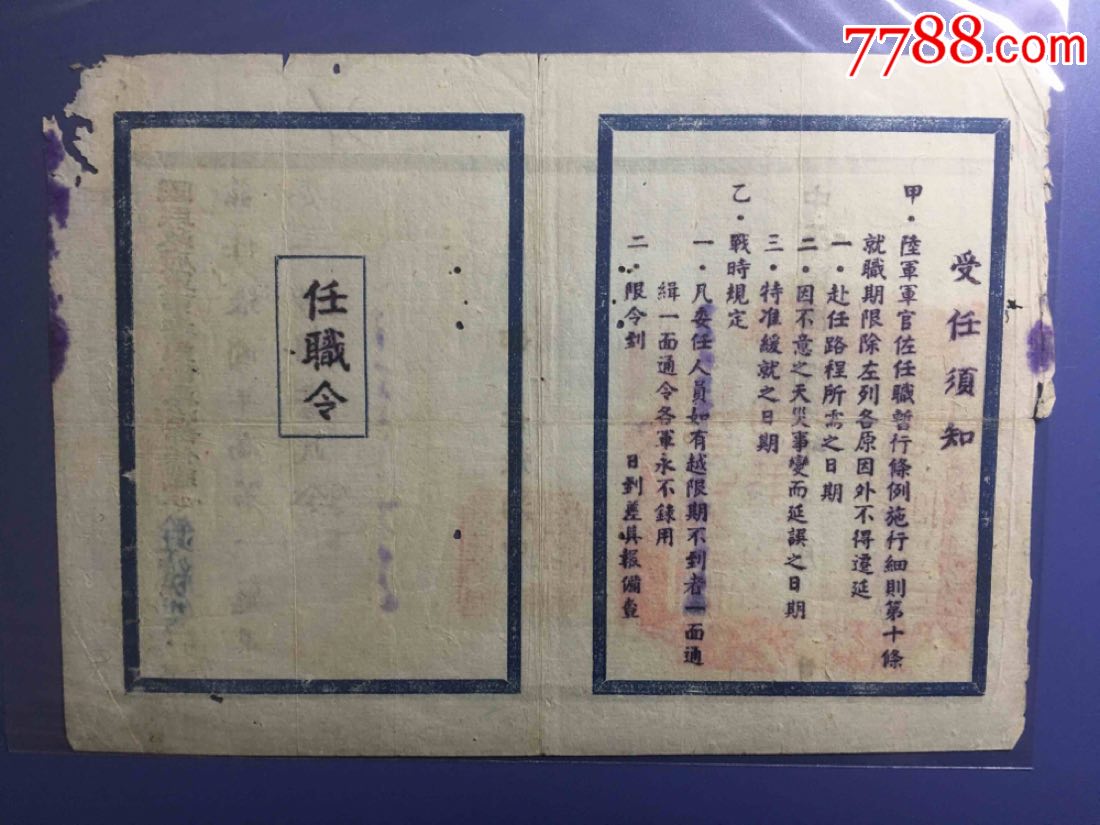 7788.com
受任須知
甲·陸軍軍官佐任職暫行條例施行細則第十條
就職期限除左列各原因外不得遷延
一·赴任路程所需之日期
二·因不意之天災事變而延誤之日期
三·特准緩就之日期
乙·戰時規定
一·凡委任人員如有越限期不到者一面通
緝一面通令各軍永不錄用
二·限令到 日到差具報備查
任職令